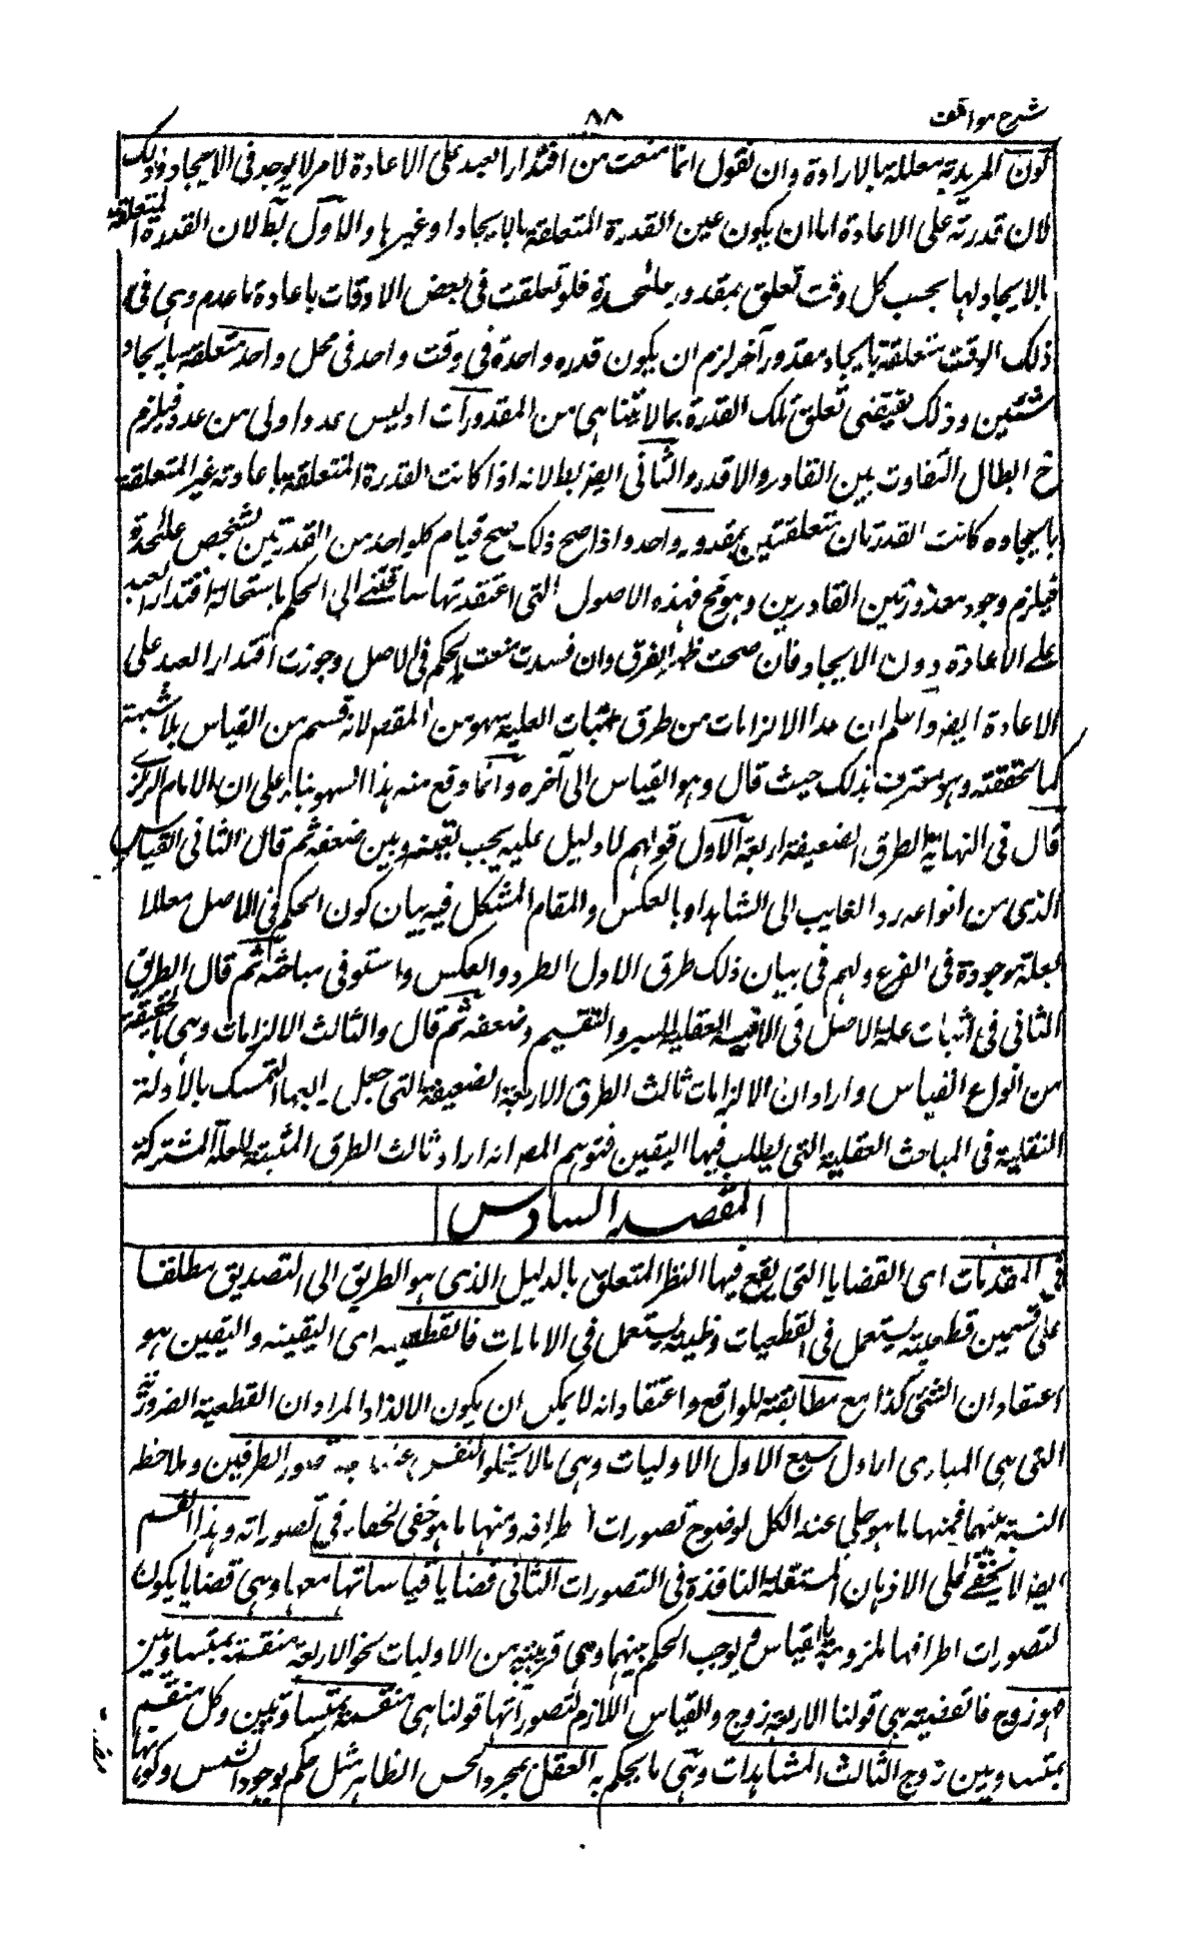 شرح مواقف
٨٨
كون المريدية معللة بالارادة وان نقول انما منعت من اقتدار العبد على الاعادة لامر لا يوجد فى الايجاد وذلك
لان قدرته على الاعادة اما ان يكون عين القدرة المتعلقة بالايجاد او غيرها والاول بط لان القدرة المتعلقة
بالايجاد لها بحسب كل وقت تعلق بمقدور علىحدة فلو تعلقت فى بعض الاوقات باعادة ما عدم وهى فى
ذلك الوقت متعلقة بايجاد مقدور آخر لزم ان يكون قدره واحدة فى وقت واحد فى محل واحد متعلقة بايجاد
شئين وذلك يقتضى تعلق تلك القدرة بمالا يتناهى من المقدورات اذ ليس عدد اولى من عدد فيلزم
ح ابطال التفاوت بين القادر والاقدر والثانى ايض بط لانه اذا كانت القدرة المتعلقة باعادته غير المتعلقة
بايجاده كانت القدرتان متعلقتين بمقدور واحد واذا صح ذلك صح قيام كلواحد من القدرتين بشخص علىحدة
فيلزم وجود مقدور بين القادرين وهو مح فهذه الاصول التى اعتقدتها ساقتنى الى الحكم باستحالة اقتدار العبد
على الاعادة دون الايجاد فان صحت ظهر الفرق وان فسدت منعت الحكم فى الاصل وجوزت اقتدار العبد على
الاعادة ايض واعلم ان عد الالزامات من طرق اثبات العلية سهو من المص لانه قسم من القياس بلا شبهة
كما تحققته وهو معترف بذلك حيث قال وهو القياس الى آخره وانما وقع منه هذا السهو بناء على ان الامام الرازى
قال فى النهاية الطرق الضعيفة اربعة الاول قولهم لا دليل عليه يجب نفيه وبين ضعفه ثم قال الثانى القياس
الذى من انواعه رد الغايب الى الشاهد او بالعكس والمقام المشكل فيه بيان كون الحكم فى الاصل معللا
بعلة موجودة فى الفرع ولهم فى بيان ذلك طرق الاول الطرد والعكس واستوفى مباحثه ثم قال الطريق
الثانى فى اثبات علة الاصل فى الاقيسة العقلية السبر والتقسيم وضعفه ثم قال والثالث الالزامات وهى بالحقيقة
من انواع القياس واراد ان الالزامات ثالث الطرق الاربعة الضعيفة التى جعل رابعها التمسك بالأدلة
النقلية فى المباحث العقلية التى يطلب فيها اليقين فتوهم المص انه اراد ثالث الطرق المثبتة للعلة المشتركة
المقصد السادس
فى المقدمات اى القضايا التى يقع فيها النظر المتعلق بالدليل الذى هو الطريق الى التصديق مطلقا
على قسمين قطعية يستعمل فى القطعيات وظنية يستعمل فى الامارات فالقطعية اى اليقينه واليقين هو
اعتقاد ان الشئ كذا مع مطابقته للواقع واعتقاد انه لا يمكن ان يكون الا كذا والمراد ان القطعية الضرورية
التى هى المبادى الاول سبع الاول الاوليات وهى مالا يخلو النفس عنها بعد تصور الطرفين وملاحظة
النسبة بينهما فمنها ما هو جلى عند الكل لوضوح تصورات اطرافه ومنها ما هو خفى لخفاء فى تصوراته وهذا القسم
ايض لا يخفى على الاذهان المشتعلة النافذة فى التصورات الثانى قضايا قياساتها معها وهى قضايا يكون
تصورات اطرافها ملزومة بالقياس يوجب الحكم بينهما وهى قريبة من الاوليات نحو الاربعة منقسمة بمتساويين
فهو زوج فالقضية هى قولنا الاربعة زوج والقياس اللازم لتصوراتها قولنا هى منقسمة بمتساويين وكل منقسم
بمتساويين زوج الثالث المشاهدات وهى ما يحكم به العقل بمجرد الحس الظاهر مثل حكم بوجود الشمس وكونها